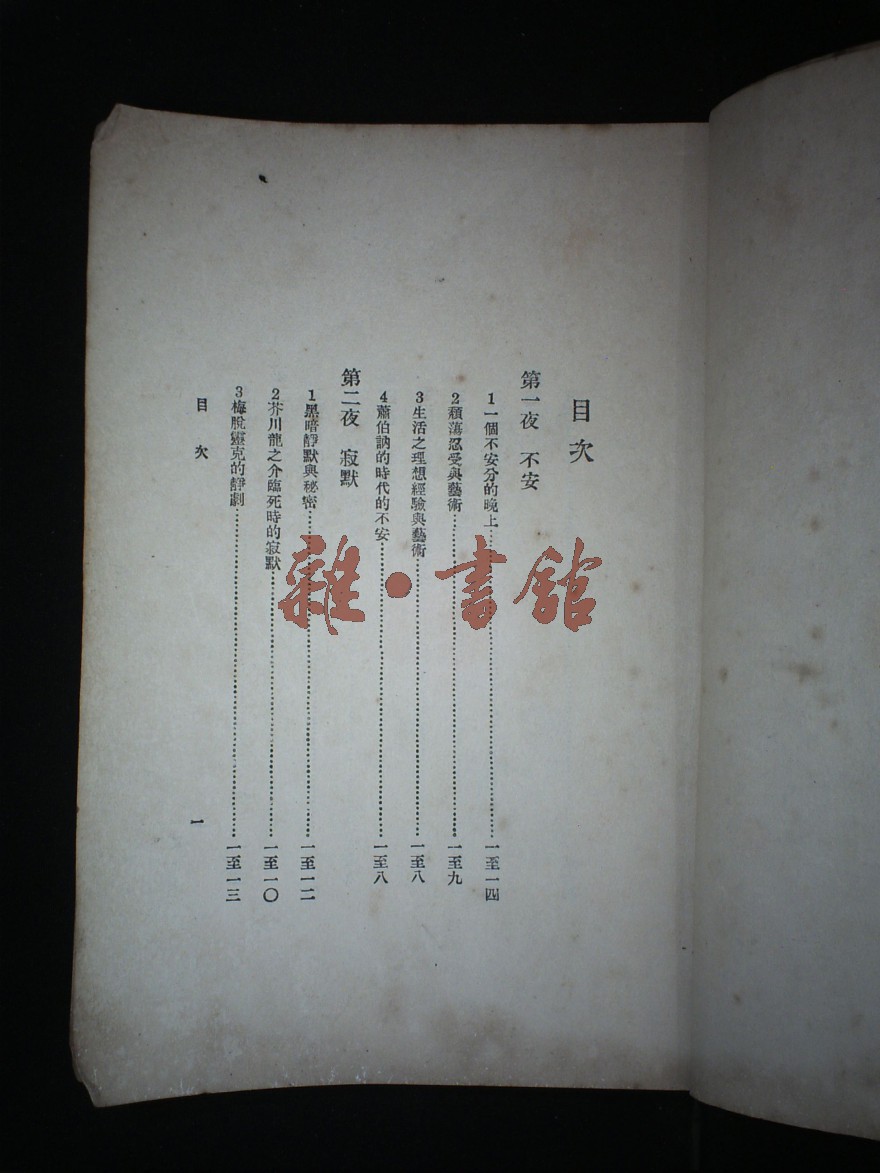 目次
第一夜　不安
1一個不安分的晚上……一至一四
2頹蕩忍受與藝術……一至九
3生活之理想經驗與藝術……一至八
4蕭伯訥的時代的不安……一至八
第二夜　寂默
1黑暗靜默與秘密……一至一二
2芥川龍之介臨死時的寂默……一至一〇
3梅脫靈克的靜劇……一至一三
目次
一
雜・書館